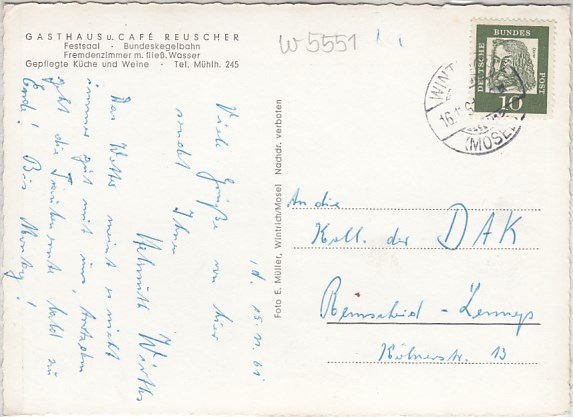 GASTHAUS u. CAFÉ REUSCHER
Festsaal · Bundeskegelbahn
Fremdenzimmer m. fließ. Wasser
Gepflegte Küche und Weine · Tel. Mühlh. 245
W5551
DEUTSCHE BUNDES POST
10
WINT
16.11.61
(MOSEL
, d. 15. 11. 61
Viele Grüße von hier
sendet Ihnen
Helmuth Wirths
Das Wetter meint es nicht
immer gut mit uns, trotzdem
geht die Traubenernte bald zu
Ende! Bis Montag!
Foto E. Müller, Wintrich/Mosel Nachdr. verboten
An die
Koll. der DAK
Remscheid-Lennep
Kölnerstr. 13